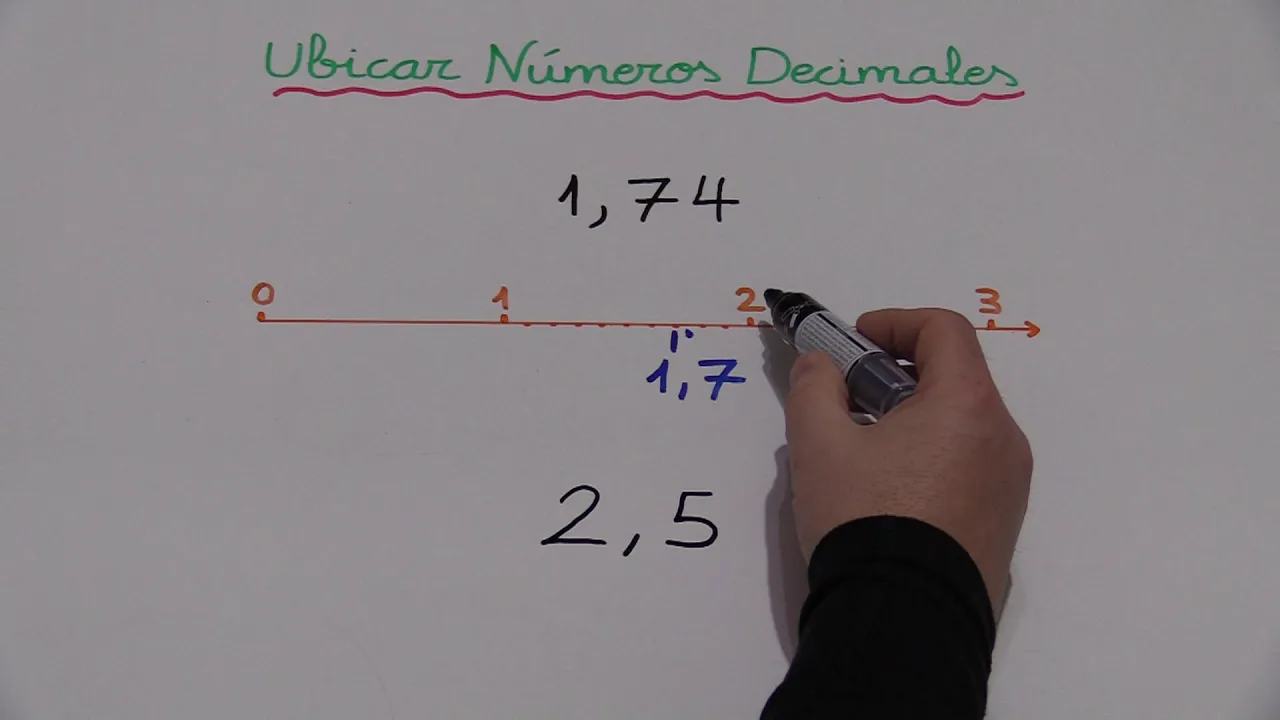 Ubicar Números Decimales
1,74
0 1 2 3
1,7
2,5